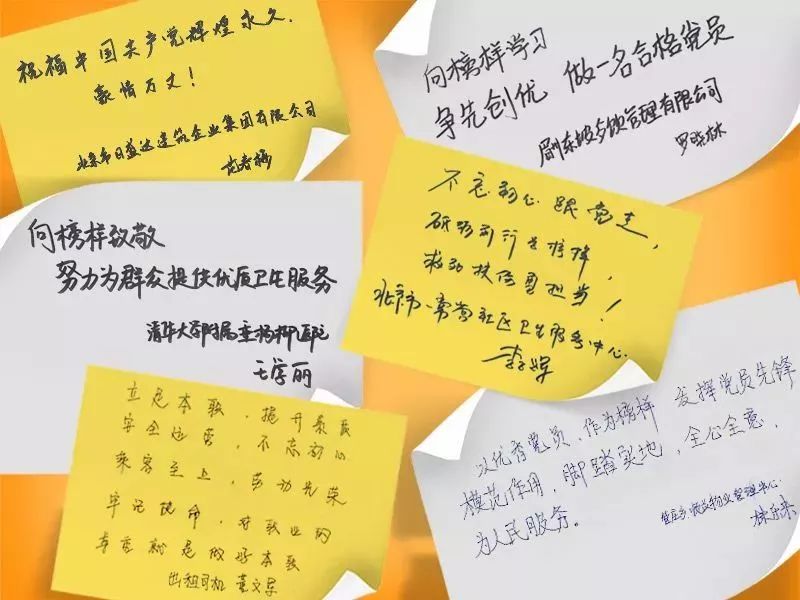 祝福中国共产党辉煌永久，
豪情万丈！
北京市日盛达建筑企业集团有限公司
范春梅
向榜样学习
争先创优 做一名合格党员
眉州东坡餐饮管理有限公司
罗晓林
向榜样致敬
努力为群众提供优质卫生服务
清华大学附属垂杨柳医院
王学丽
不忘初心跟党走，
砥砺前行
救死扶伤勇担当！
北京市常营社区卫生服务中心
李辉
立足本职，提升素质
安全运营，不忘初心
乘客至上，劳动光荣
牢记使命，对职业的
就是做好本职
出租司机 董文军
以优秀党员，作为榜样 发挥党员先锋
模范作用，脚踏实地，全心全意，
为人民服务。
物业管理中心